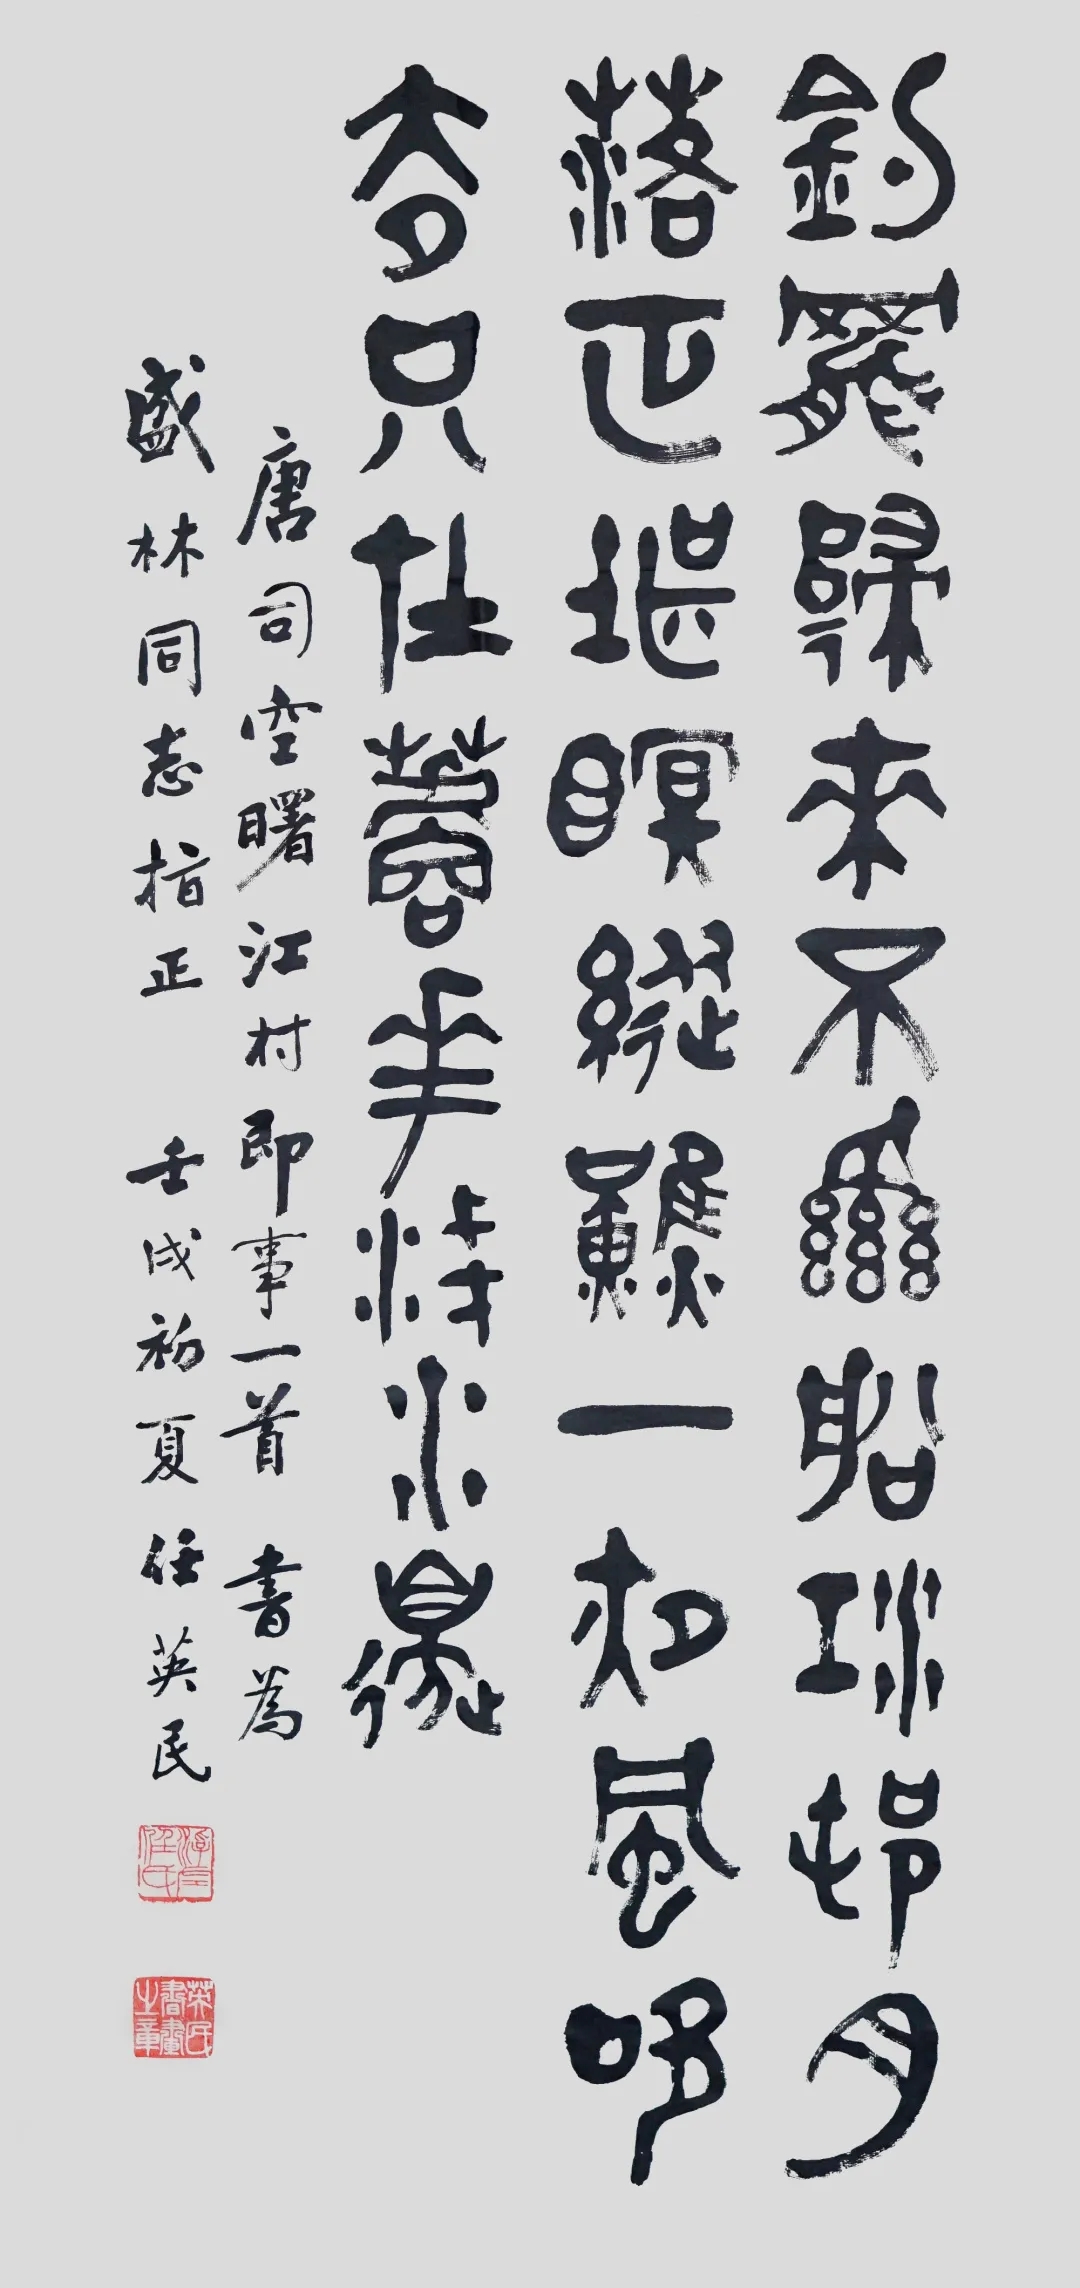 釣罷歸來不繫船江邨月
落正堪瞑縱然一夜風吹
去只在蘆花淺水邊
唐司空曙江村即事一首 書為
盛林同志指正 壬戌初夏 任英民
英民書畫之章